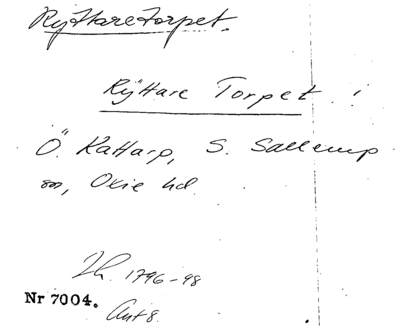 Ryttaretorpet.
Ryttare Torpet.
Ö. Kattarp, S. Sallerup
sn, Oxie hd.
1796-98
Nr 7004.
Akt 8.